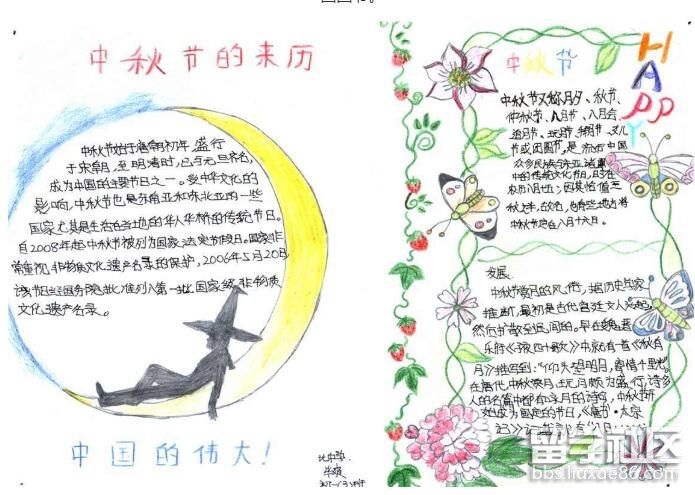 中秋节的来历
中秋节始于唐朝初年,盛行
于宋朝,至明清时,已与元旦齐名,
成为中国的主要节日之一。受中华文化的
影响,中秋节也是东南亚和东北亚的一些
国家尤其是生活在当地的华人华侨的传统节日。
自2008年起中秋节被列为国家法定节假日。国家非
常重视非物质文化遗产名录的保护,2006年5月20日
该节日经国务院批准列入第一批国家级非物质
文化遗产名录。
中国的伟大!
中秋节
HAPPY
中秋节又称月夕、秋节、
仲秋节、八月节、八月会、
追月节、玩月节、拜月节、女儿
节或团圆节,是流行中国
众多民族与东亚诸国
中的传统文化节日,时在
农历八月十五;因其恰值三
秋之半,故名,也有些地方将
中秋节定在八月十六日。
发展:
中秋节赏月的风俗,据历史学家
推断,最初是古代宫廷文人兴起,
然后扩散至民间的。早在魏晋
乐府《子夜四十歌》中就有一首《秋有
月》描写到:“仰头望明月,寄情千里光。”
在唐代中秋赏月、玩月颇为盛行,许多
人的名篇中都有咏月的诗句,中秋节开
始成为固定的节日,《唐书·太宗
记》
留学社区
bbs.liuxue86.com